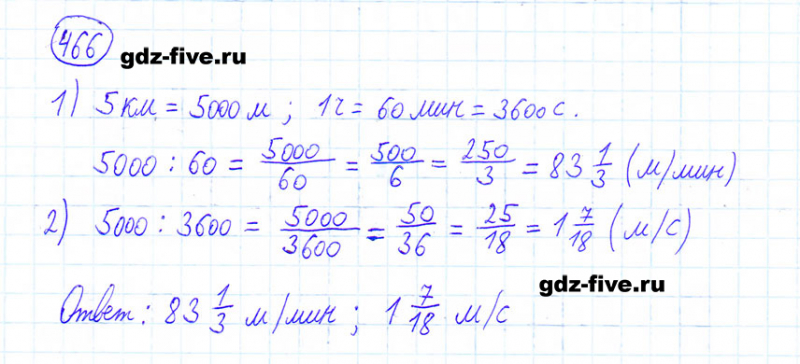 466
gdz-five.ru
1) 5 км = 5000 м ; 1 ч = 60 мин = 3600 с.
5000 : 60 = 5000/60 = 500/6 = 250/3 = 83 1/3 (м/мин)
2) 5000 : 3600 = 5000/3600 = 50/36 = 25/18 = 1 7/18 (м/с)
gdz-five.ru
Ответ: 83 1/3 м/мин ; 1 7/18 м/с